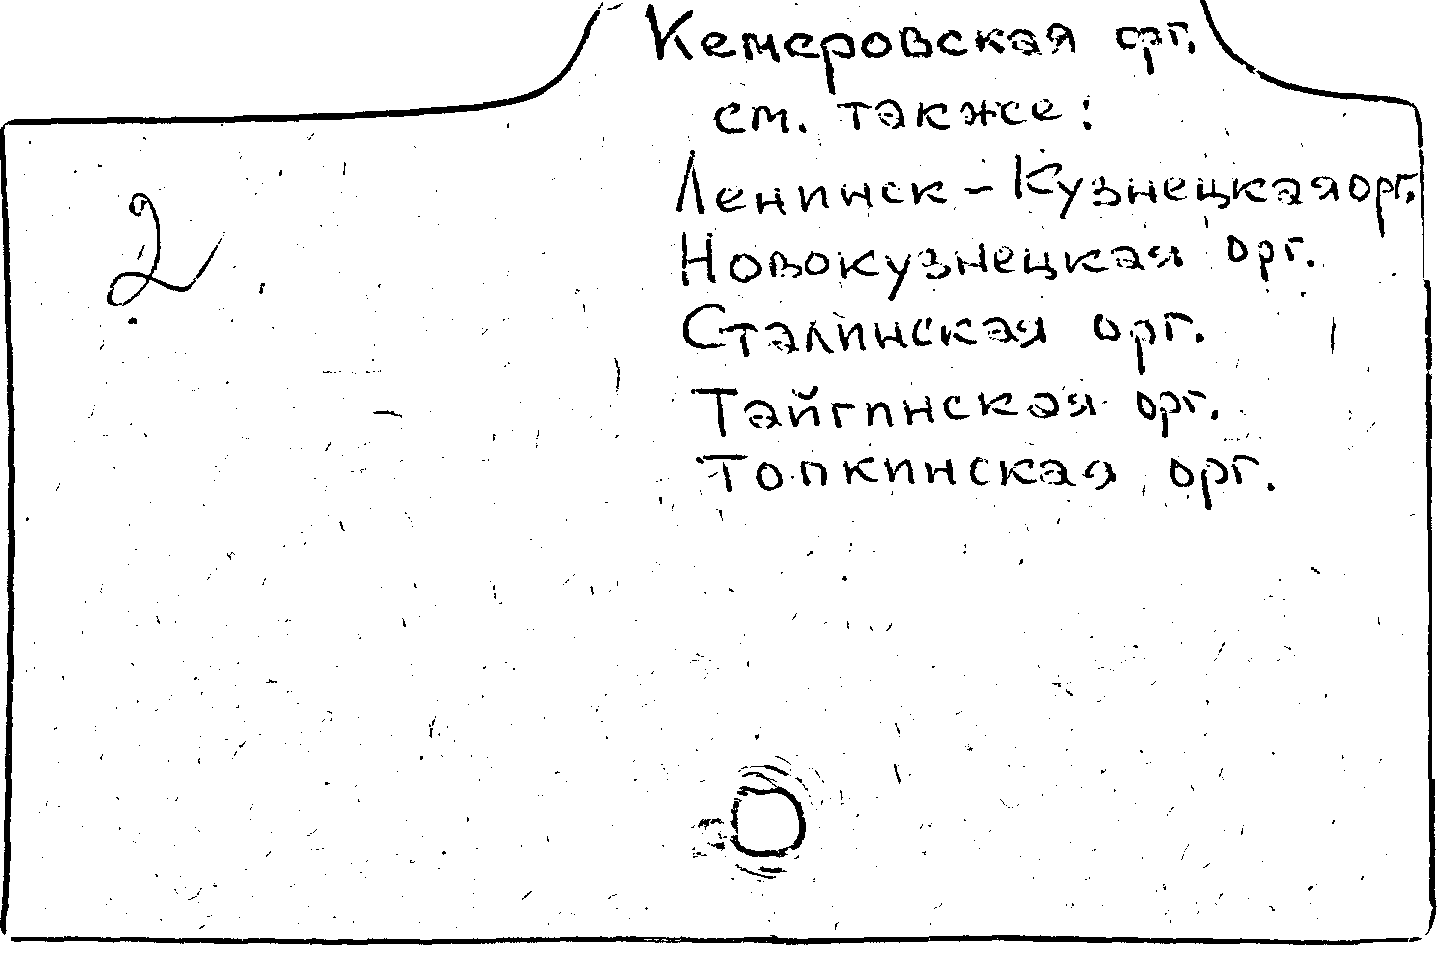 Кемеровская орг.
см. также:
Ленинск-Кузнецкая орг.
2
Новокузнецкая орг.
Сталинская орг.
Тайгинская орг.
Топкинская орг.